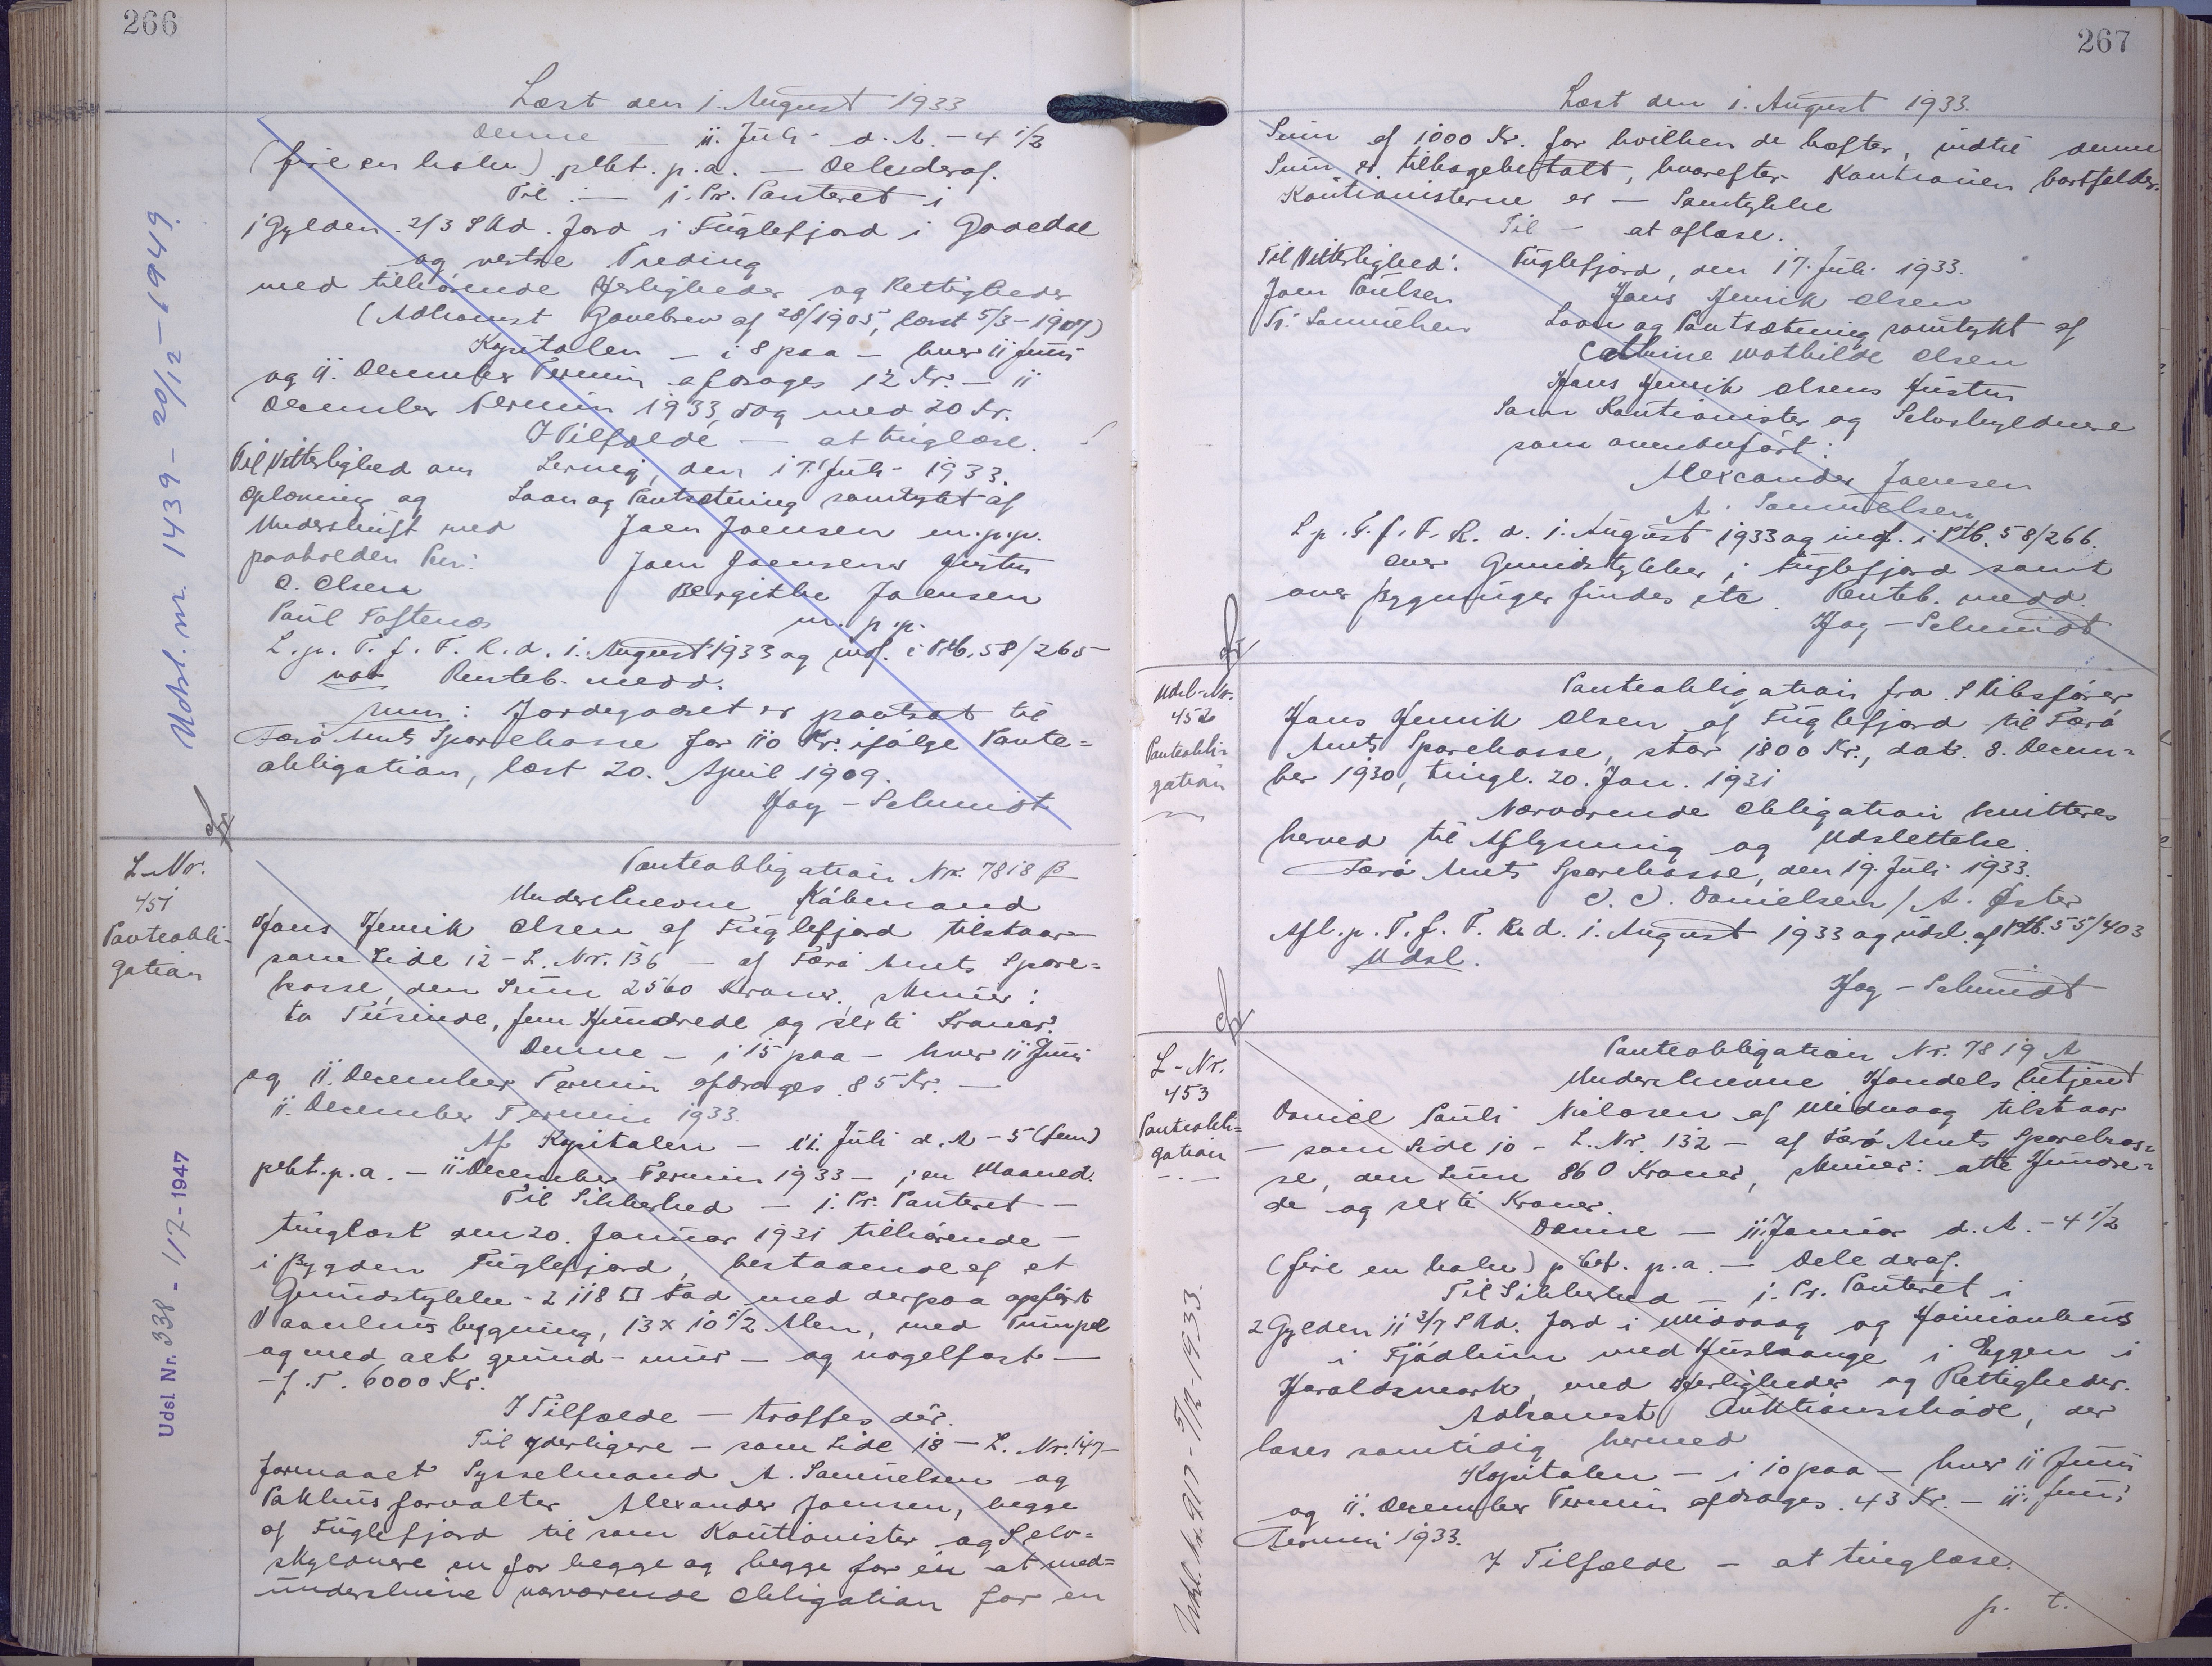 266
Læst den 1. August 1933
Denne — 11. Juli d. A. - 4 1/2
(fire en halv) pCt. p. a. — Dele deraf.
Til — 1. Pr. Panteret i
1 Gylden 2/3 Skd. Jord i Fuglefjord i
og vestre Treding
med tilhørende Herligheder og Rettigheder
(Adkomst Gavebrev af 28/1905, læst 5/3-1907)
Kapitalen — i 8 paa — hver 11 Juni
og 11. December Termin afdrages 12 Kr. — 11
December Termin 1933, dog med 20 Kr.
I Tilfælde — at tinglæse.
Til Vitterlighed om
Oplæsning og
Underskrift med
paaholden Pen:
O. Olsen
Paul
den 17. Juli 1933.
Laan og Pantsætning samtykt af
Joen Joensen m. p. p.
Joen Joensens Hustru
Bergithe Joensen
m. p. p.
L. p. T. f. F. R. d. 1. August 1933 og indf. i Ptb. 58/265
not Renteb. medd.
Anm: Jordegodset er pantsat til
Færø Amts Sparekasse for 110 Kr. ifølge Pante=
obligation, læst 20. April 1909.
Høy-Schmidt
Udsl. nr. 1439 - 20/12-1949.
L-Nr.
451
Panteobli-
gation
Panteobligation Nr. 7818 B
Underskrevne Købmand
Hans Henrik Olsen af Fuglefjord tilstaar —
som Side 12 - L. Nr. 136 — af Færø Amts Spare=
kasse, den Sum 2560 Kroner, skriver:
to Tusinde, fem Hundrede og sexti Kroner.
Denne — i 15 paa — hver 11 Juni
og 11. December Termin afdrages 85 Kr. —
11. December Termin 1933.
Af Kapitalen — 11. Juli d. A - 5 (fem)
pCt. p. a. — 11 December Termin 1933 — 1 en Maaned.
Til Sikkerhed — 1. Pr. Panteret —
tinglæst den 20. Januar 1931 tilhørende —
i Bygden Fuglefjord, bestaaende af et
Grundstykke - 2118 □ Fod med derpaa opført
Vaaningsbygning, 13 x 10 1/2 Alen, med
og med alt grund- mur- og nagelfast —
- f. T. 6000 Kr.
I Tilfælde — træffes dér.
Til yderligere — som Side 18 - L. Nr. 147 —
formaaet Sysselmand A. Samuelsen og
Pakhusforvalter Alexander Joensen, begge
af Fuglefjord til som Kautionister og Selv=
skyldnere en for begge og begge for én at med=
underskrive nærværende Obligation for en
Udsl Nr. 338 - 1/7-1947
267
Læst den 1. August 1933.
Sum af 1000 Kr. for hvilken de hæfter, indtil denne
Sum er tilbagebetalt, hvorefter Kautionen bortfalder.
Kautionisterne er — Samtykke
Til — at aflæse.
Til Vitterlighed:
Joen Poulsen
Fr. Samuelsen
Fuglefjord, den 17. Juli 1933.
Hans Henrik Olsen
Laan og Pantsætning samtykt af
Cathrine Mathilde Olsen
Hans Henrik Olsens Hustru
Som Kautionister og Selvskyldnere
som ovenanført:
Alexander Joensen
A. Samuelsen
L. p. T. f. F. R. d. 1. August 1933 og indf. i Ptb. 58/266.
over Grundstykker i Fuglefjord samt
over Bygninger findes etc. Renteb. medd.
Høy-Schmidt
Udsl-Nr.
452
Panteobli-
gation
Panteobligation fra Skibsfører
Hans Henrik Olsen af Fuglefjord til Færø
Amts Sparekasse, stor 1800 Kr., dat. 8. Decem=
ber 1930, tingl. 20. Jan. 1931
Nærværende Obligation kvitteres
herved til Aflysning og Udslettelse.
Færø Amts Sparekasse, den 19. Juli 1933.
J. J. Danielsen / A. Øster
Afl. p. T. f. F. R. d. 1. August 1933 og udsl. af Ptb. 55/403
Udsl.
Høy-Schmidt
L-Nr.
453
Panteobli=
gation
Panteobligation Nr. 7819 A
Underskrevne Handelsbetjent
Daniel Pauli Nielsen af Midvaag tilstaar
— som Side 10 - L. Nr. 132 — af Færø Amts Sparekas=
se, den Sum 860 Kroner, skriver: otte Hundre=
de og sexti Kroner.
Denne — 11 Januar d. A. - 4 1/2
(fire en halv) pCt. p. a. — Dele deraf.
Til Sikkerhed — 1. Pr. Panteret i
2 Gylden 11 3/7 Skd. Jord i Midvaag og
i med i Eggen i
Haraldsmark, med Herligheder og Rettigheder.
Adkomst Auktionsskøde, der
læses samtidig hermed
Kapitalen — i 10 paa — hver 11 Juni
og 11. December Termin afdrages 43 Kr. — 11. Juni
Termin 1933.
I Tilfælde — at tinglæse.
p. t.
Udsl. Nr. 917 - 5/12-1933.